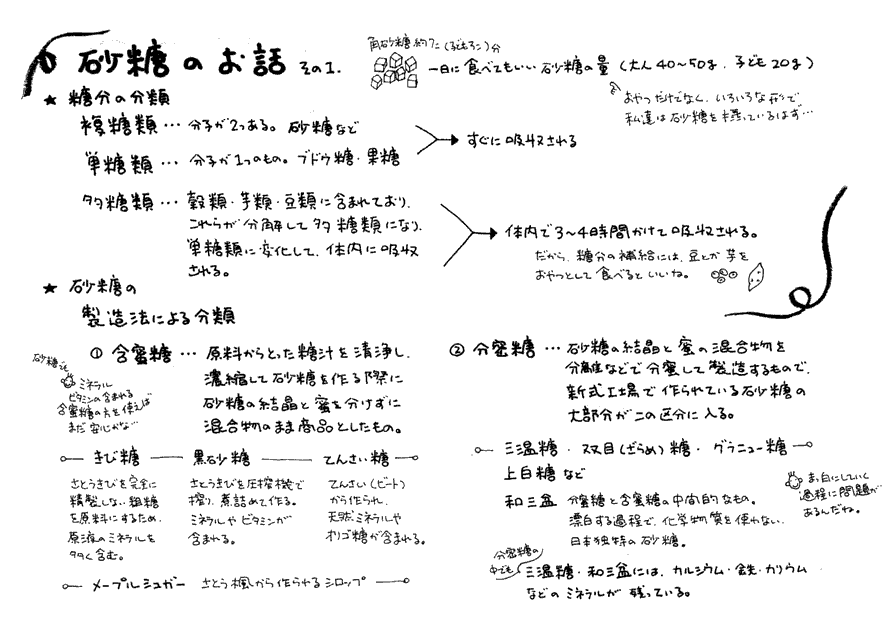 砂糖のお話 その1.
角砂糖約7こ(子ども5こ)分
一日に食べてもいい砂糖の量(大人40~50g.子ども20g)
おやつだけでなく、いろいろな形で
私達は砂糖を摂っているはず…
★ 糖分の分類
複糖類…分子が2つある。砂糖など
単糖類…分子が1つのもの。ブドウ糖・果糖
すぐに吸収される
多糖類…穀類・芋類・豆類に含まれており、
これらが分解して多糖類になり、
単糖類に変化して、体内に吸収
される。
体内で3~4時間かけて吸収される。
だから、糖分の補給には、豆とか芋を
おやつとして食べるといいね。
★ 砂糖の
製造法による分類
① 含蜜糖…原料からとった糖汁を清浄し、
濃縮して砂糖を作る際に
砂糖の結晶と蜜を分けずに
混合物のまま商品としたもの。
砂糖でも
ミネラル
ビタミンの含まれる
含蜜糖の方を使えば
まだ安心かな…
きび糖
さとうきびを完全に
精製しない粗糖
を原料にするため、
原液のミネラルを
多く含む。
黒砂糖
さとうきびを圧搾機で
搾り、煮詰めて作る。
ミネラルやビタミンが
含まれる。
てんさい糖
てんさい(ビート)
から作られ、
天然ミネラルや
オリゴ糖が含まれる。
メープルシュガー さとう楓から作られるシロップ
② 分蜜糖…砂糖の結晶と蜜の混合物を
分離などで分蜜して製造するもので、
新式工場で作られている砂糖の
大部分がこの区分に入る。
三温糖・双目(ざらめ)糖・グラニュー糖
上白糖など
和三盆 分蜜糖と含蜜糖の中間的なもの。
漂白する過程で、化学物質を使わない、
日本独特の砂糖。
まっ白にしていく
過程に問題が
あるんだね。
分蜜糖の
中でも
三温糖・和三盆には、カルシウム・鉄・カリウム
などのミネラルが残っている。